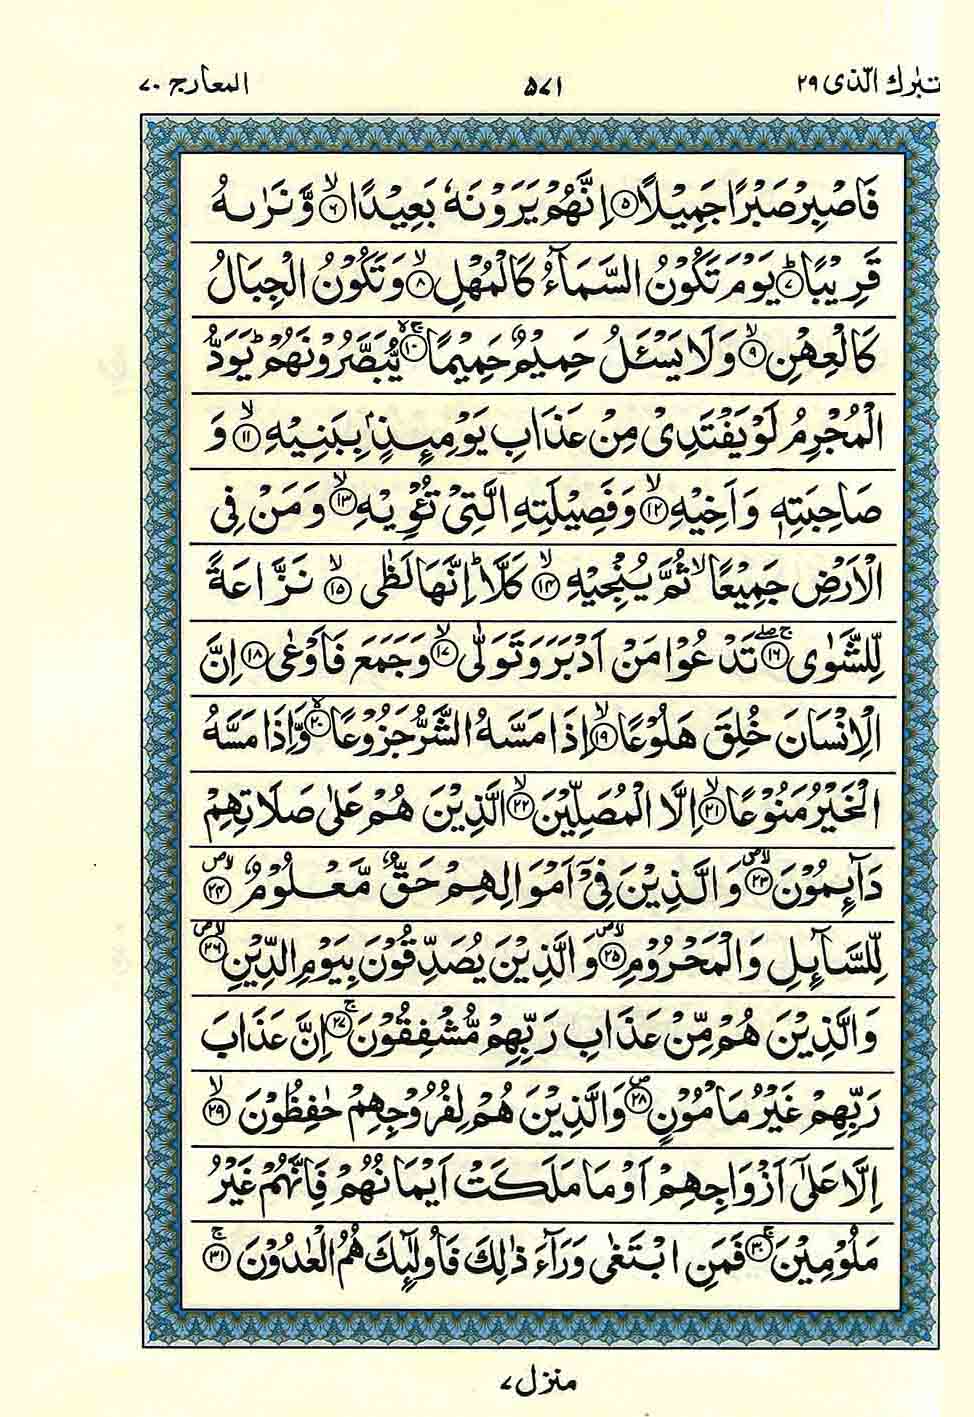 تبٰرك الّذى ٢٩ ۵۷۱ المعارج ۷۰
فَاصۡبِرۡ صَبۡرًا جَمِيۡلًا ﴿۵﴾ اِنَّهُمۡ يَرَوۡنَهٗ بَعِيۡدًا ۙ﴿۶﴾ وَّنَرٰٮهُ
قَرِيۡبًا ؕ﴿۷﴾ يَوۡمَ تَكُوۡنُ السَّمَآءُ كَالۡمُهۡلِ ۙ﴿۸﴾ وَتَكُوۡنُ الۡجِبَالُ
كَالۡعِهۡنِ ۙ﴿۹﴾ وَلَا يَسۡـَٔـلُ حَمِيۡمٌ حَمِيۡمًا ۖۚ﴿۱۰﴾ يُّبَصَّرُوۡنَهُمۡ‌ؕ يَوَدُّ
الۡمُجۡرِمُ لَوۡ يَفۡتَدِىۡ مِنۡ عَذَابِ يَوۡمِٮِٕذٍۢ بِبَنِيۡهِ ۙ﴿۱۱﴾ وَ
صَاحِبَتِهٖ وَاَخِيۡهِ ۙ﴿۱۲﴾ وَفَصِيۡلَتِهِ الَّتِىۡ تُــْٔوِيۡهِ ۙ﴿۱۳﴾ وَمَنۡ فِى
الۡاَرۡضِ جَمِيۡعًا ۙ ثُمَّ يُنۡجِيۡهِ ۙ﴿۱۴﴾ كَلَّا ؕ اِنَّهَا لَظٰى ۙ﴿۱۵﴾ نَزَّاعَةً
لِّلشَّوٰى ‌ۖۚ﴿۱۶﴾ تَدۡعُوۡا مَنۡ اَدۡبَرَ وَتَوَلّٰى ۙ﴿۱۷﴾ وَجَمَعَ فَاَوۡعٰى ﴿۱۸﴾ اِنَّ
الۡاِنۡسَانَ خُلِقَ هَلُوۡعًا ۙ﴿۱۹﴾ اِذَا مَسَّهُ الشَّرُّ جَزُوۡعًا ۙ﴿۲۰﴾ وَّاِذَا مَسَّهُ
الۡخَيۡرُ مَنُوۡعًا ۙ﴿۲۱﴾ اِلَّا الۡمُصَلِّيۡنَ ۙ﴿۲۲﴾ الَّذِيۡنَ هُمۡ عَلٰى صَلَاتِهِمۡ
دَآٮِٕمُوۡنَ ۙ‌ۖ﴿۲۳﴾ وَالَّذِيۡنَ فِىۡۤ اَمۡوَالِهِمۡ حَقٌّ مَّعۡلُوۡمٌ ۙ‌ۖ﴿۲۴﴾
لِّلسَّآٮِٕلِ وَالۡمَحۡرُوۡمِ ۙ‌ۖ﴿۲۵﴾ وَالَّذِيۡنَ يُصَدِّقُوۡنَ بِيَوۡمِ الدِّيۡنِ ۙ‌ۖ﴿۲۶﴾
وَالَّذِيۡنَ هُمۡ مِّنۡ عَذَابِ رَبِّهِمۡ مُّشۡفِقُوۡنَ‌ۚ﴿۲۷﴾ اِنَّ عَذَابَ
رَبِّهِمۡ غَيۡرُ مَاۡمُوۡنٍ ۖ﴿۲۸﴾ وَالَّذِيۡنَ هُمۡ لِفُرُوۡجِهِمۡ حٰفِظُوۡنَ ۙ﴿۲۹﴾
اِلَّا عَلٰٓى اَزۡوَاجِهِمۡ اَوۡ مَا مَلَكَتۡ اَيۡمَانُهُمۡ فَاِنَّهُمۡ غَيۡرُ
مَلُوۡمِيۡنَ‌ۚ﴿۳۰﴾ فَمَنِ ابۡتَغٰى وَرَآءَ ذٰلِكَ فَاُولٰٓٮِٕكَ هُمُ الۡعٰدُوۡنَ‌ۚ﴿۳۱﴾
منزل ۷